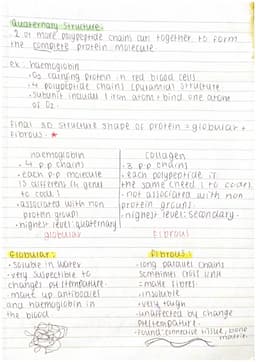 Quaternary Structure:
· 2 or more polypeptide chains can together to form
the complete protein molecule.
ex: haemoglobin
· O2 carrying protein in red blood cells
· 4 polypeptide chains (pyramidal) structure
· subunit includes 1 iron atom + bind one atom
of O2.
final 3D structure shape of protein = globular +
fibrous. *
haemoglobin
· 4 p.p chains
· each p.p molecule
is different (4 genes
to code)
· associated with non
protein group
· highest level: quaternary
globular
collagen
· 3 p.p chains
· each polypeptide is
the same (need 1 to code)
· not associated with non
protein groups.
· highest level: secondary.
fibrous
Globular:
· soluble in water
· very suspectible to
changes pH/temperature.
· make up antibodies
and haemoglobin in
the blood.
Fibrous:
· long parallel chains
sometimes cross link
· make fibres.
· insoluble
· very tough
· unaffected by change
pH/temperature.
· found: connective tissue, bone
matrix.